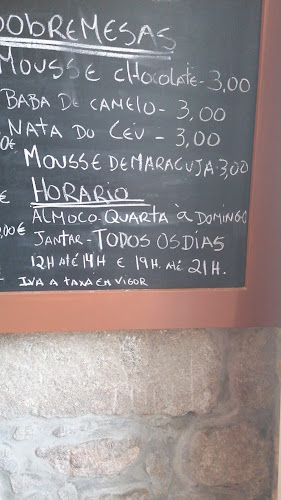 SOBREMESAS
MOUSSE CHOCOLATE - 3,00
BABA DE CAMELO - 3,00
NATA DO CÉU - 3,00
0€
MOUSSE DE MARACUJA - 3,00
€
HORARIO
ALMOCO - QUARTA À DOMINGO
,00€
JANTAR - TODOS OS DIAS
12H ATÉ 14H E 19H. ATÉ 21H.
IVA A TAXA EM VIGOR